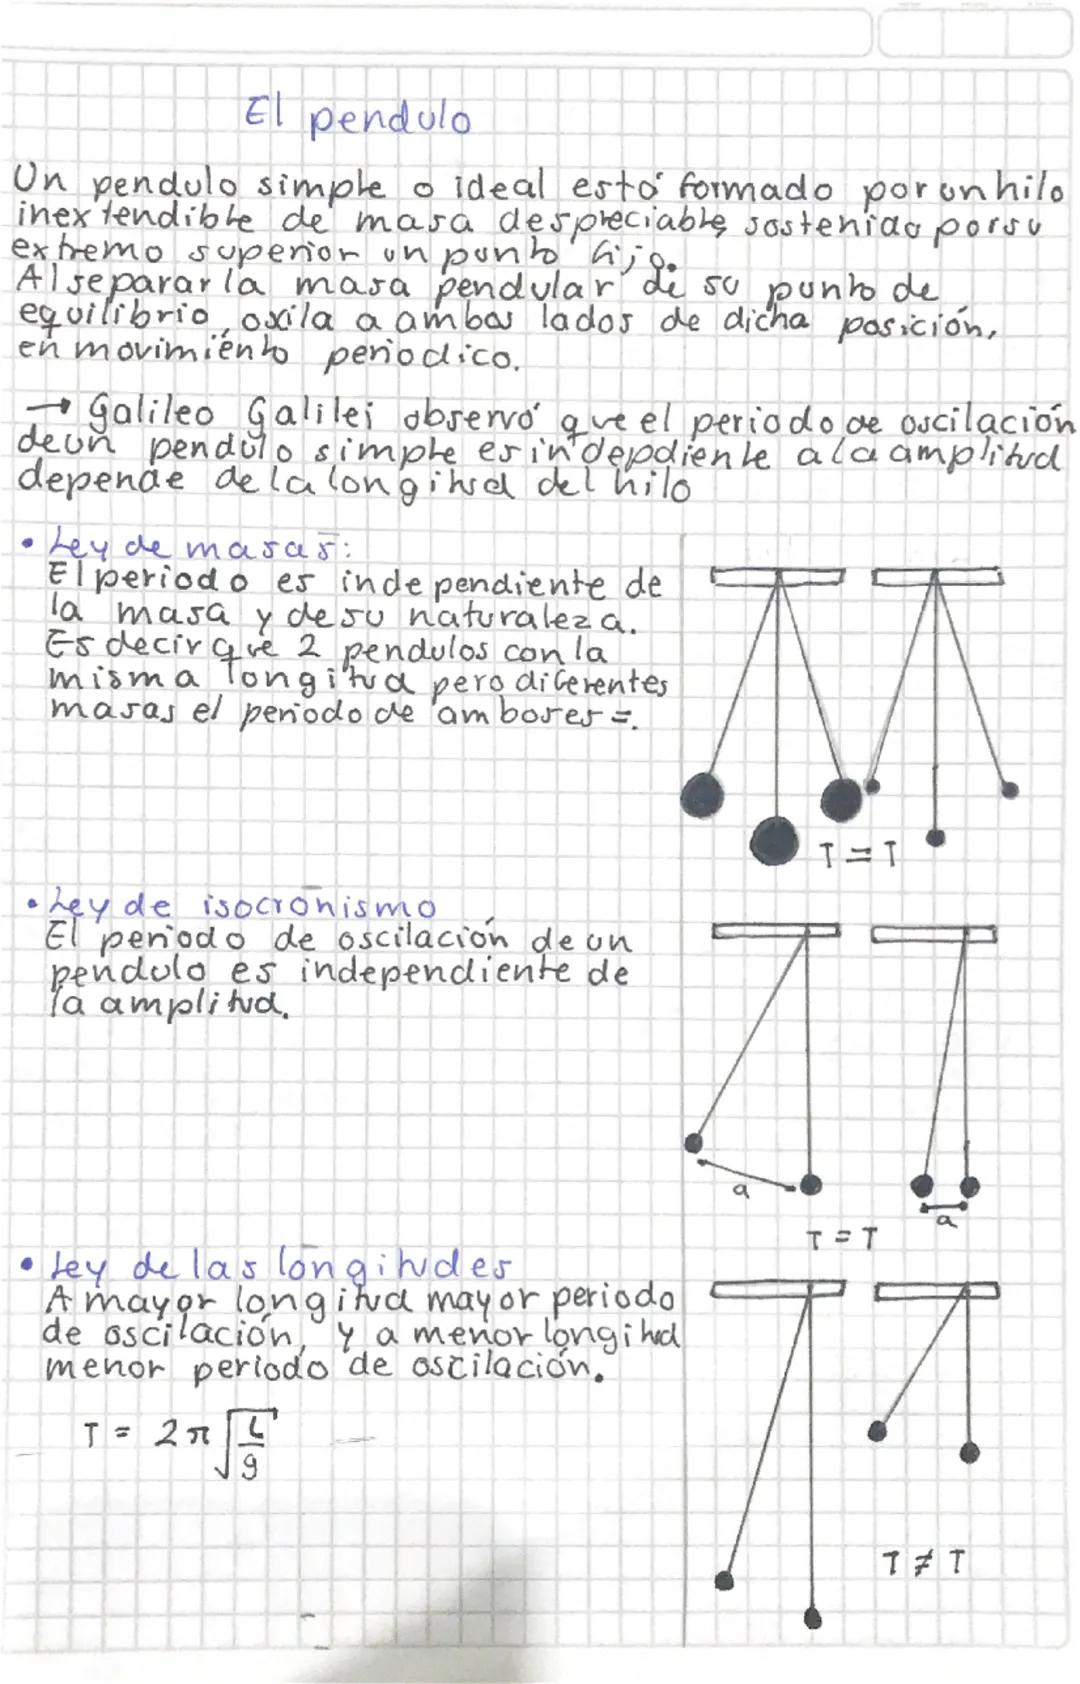 El pendulo
Un pendulo simple o ideal está formado por un hilo
inextendible de masa despreciable, sostenido por su
extremo superior un punto fijo.
Al separar la masa pendular de su punto de
equilibrio, oscila a ambos lados de dicha posición,
en movimiento periodico.
→ Galileo Galilei observó que el periodo de oscilación
de un pendulo simple es indepdiente a la amplitud
depende de la longitud del hilo
• Ley de masas:
El periodo es independiente de
la masa y de su naturaleza.
Es decir que 2 pendulos con la
misma longitud pero diferentes
masas el periodo de ambos es =.
T = T
• Ley de isocronismo
El periodo de oscilación de un
pendulo es independiente de
la amplitud.
a
a
T = T
• Ley de las longitudes
A mayor longitud mayor periodo
de oscilación, y a menor longitud
menor periodo de oscilación.
T = 2π √(L/g)
T ≠ T